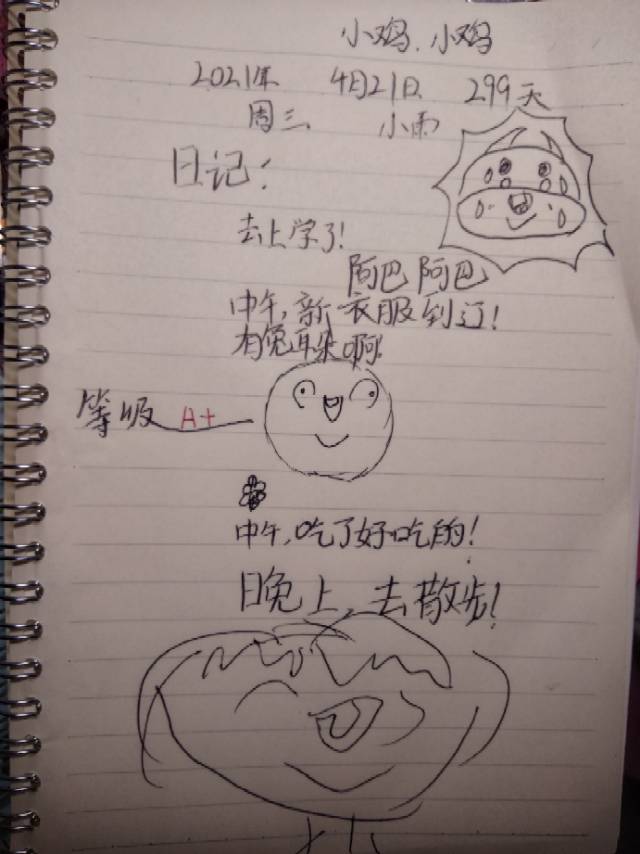 小鸡、小鸡
2021年 4月21日 299天
周三 小雨
日记:
去上学了!
阿巴阿巴
中午,新衣服到辽!
有兔耳朵啊!
等级 A+
中午,吃了好吃的!
晚上,去散步!